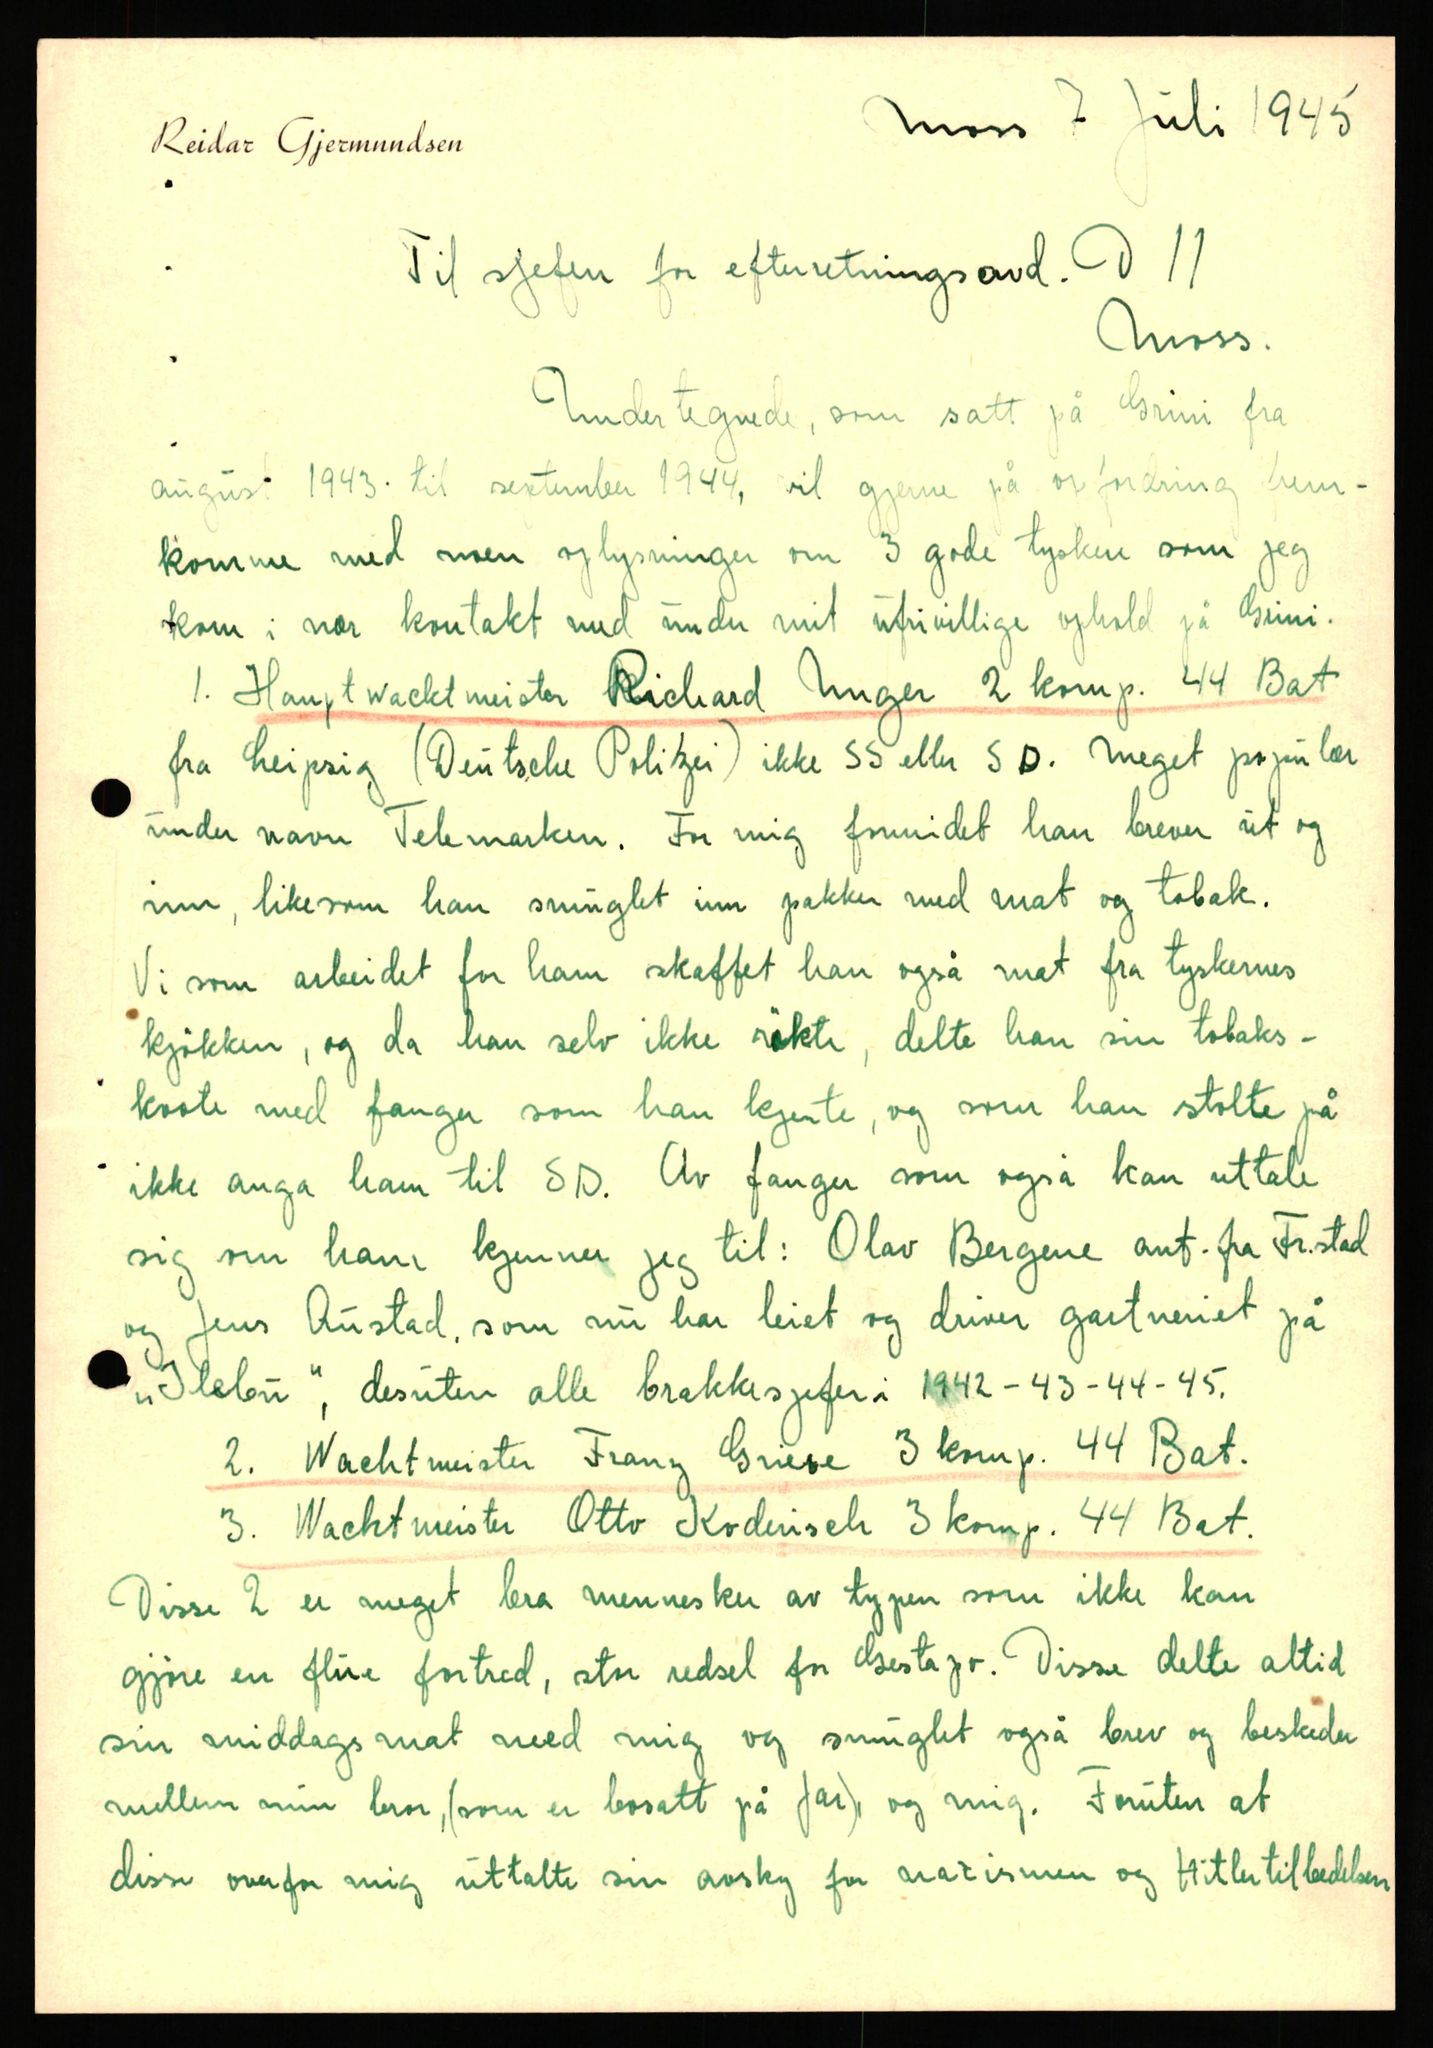 Reidar Gjermundsen
Moss 7 Juli 1945
Til sjefen for efterretningsavd. D 11
Moss.
Undertegnede, som satt på Grini fra
august 1943. til september 1944, vil gjerne på opfordring frem-
komme med noen oplysninger om 3 gode tyskere som jeg
kom i nær kontakt med under mit ufrivillige ophold på Grini.
1. Hauptwacktmeister Richard Unger 2 komp. 44 Bat
fra Leipzig (Deutsche Polizei) ikke SS eller SD. Meget populær
under navn Telemarken. For mig formidet han brever ut og
inn, likesom han smuglet inn pakker med mat og tobak.
Vi som arbeidet for ham skaffet han også mat fra tyskernes
kjökken, og da han selv ikke rökte, delte han sin tobaks-
kvote med fanger som han kjente, og som han stolte på
ikke anga ham til SD. Av fanger som også kan uttale
sig om ham kjenner jeg til: Olav Bergene ant. fra Fr.stad
og Jens Austad, som nu har leiet og driver gartneriet på
"Ilebu", desuten alle brakkesjefer i 1942-43-44-45.
2. Wachtmeister Franz Griese 3 komp. 44 Bat.
3. Wachtmeister Otto Koderisch 3 komp. 44 Bat.
Disse 2 er meget bra mennesker av typen som ikke kan
gjöre en flue fortred, stor redsel for Gestapo. Disse delte altid
sin middagsmat med mig og smuglet også brev og beskeder
mellem min bror, (som er bosatt på Jar), og mig. Foruten at
disse overfor mig uttalte sin avsky for nazismen og Hitlertilbedelsen